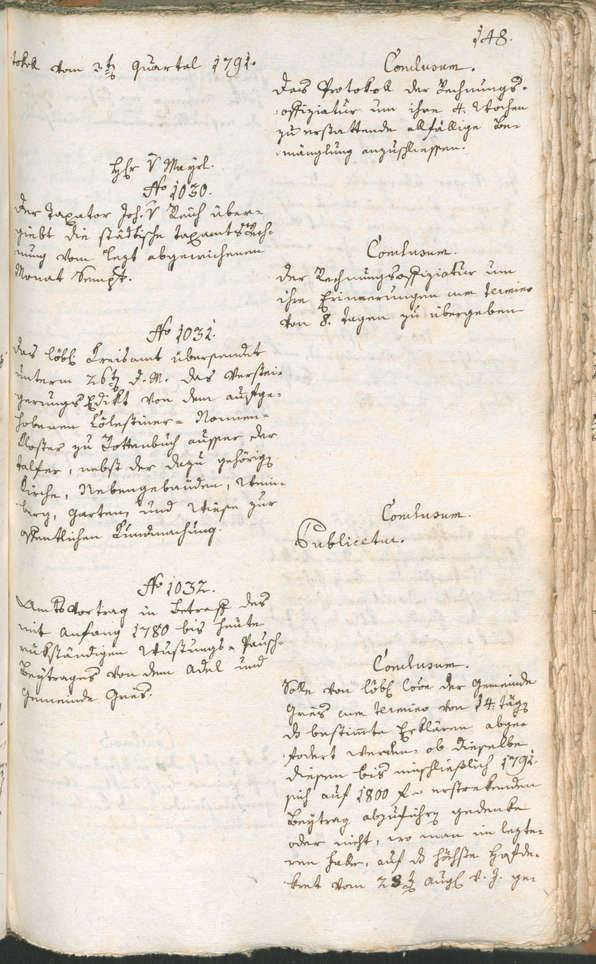 148.
tokoll vom 3ten Quartal 1791.
Conclusum.
Das Protokoll der Rechnungs-
offiziatur um ihre 4. Wochen
zu erstattende allfällige Be-
mänglung anzuschliessen.
Hr. v Mayrl.
No 1030.
Der Taxator Joh. v Reich über-
giebt die städtische Taxamts Rech-
nung vom lezt abgewichenen
Monat Sempt.
Conclusum.
Der Rechnungsoffiziatur um
ihre Erinnerungen cum termino
von 8. Tagen zu übergeben
No 1031.
Das löbl Kreisamt übersendet
unterm 26ten d. M. das Verstei-
gerungs Edikt von dem aufge-
hobenen Cölestiner-Nonnen-
kloster zu Rottenbuch ausser der
Talfer, nebst der dazu gehörigen
Kirche, Nebengebäuden, Wein-
berg, Garten und Wiese zur
öffentlichen Kundmachung.
Conclusum.
Publicetur.
No 1032.
Amts Vortrag in Betreff des
mit Anfang 1780 bis heute
rükständigen Wustungs-Pausch-
Beytrages von dem Adel und
Gemeinde Gries.
Conclusum.
Solle von löbl der Gemeinde
Gries cum termino von 14. Tägen
die bestimte Erklären abge-
fodert werden: ob dieselbe
diesen bis einschließlich 1791.
sich auf 1800 f erstreckenden
Beytrag abzuführen gedenke
oder nicht, wo man im lezte-
ren Falle, auf das höchste Hofde-
kret vom 28ten Augl v. J. ge-